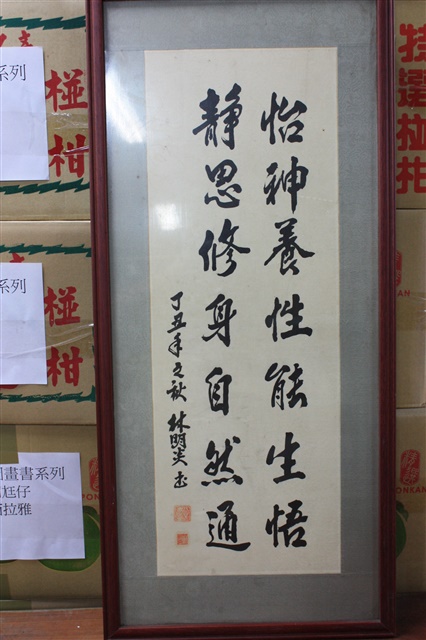 怡神養性能生悟
靜思修身自然通
丁丑年之秋 林明炎書
系列
椪柑
系列
椪柑
畫書系列
尪仔
拉雅
特選椪柑
PONKAN